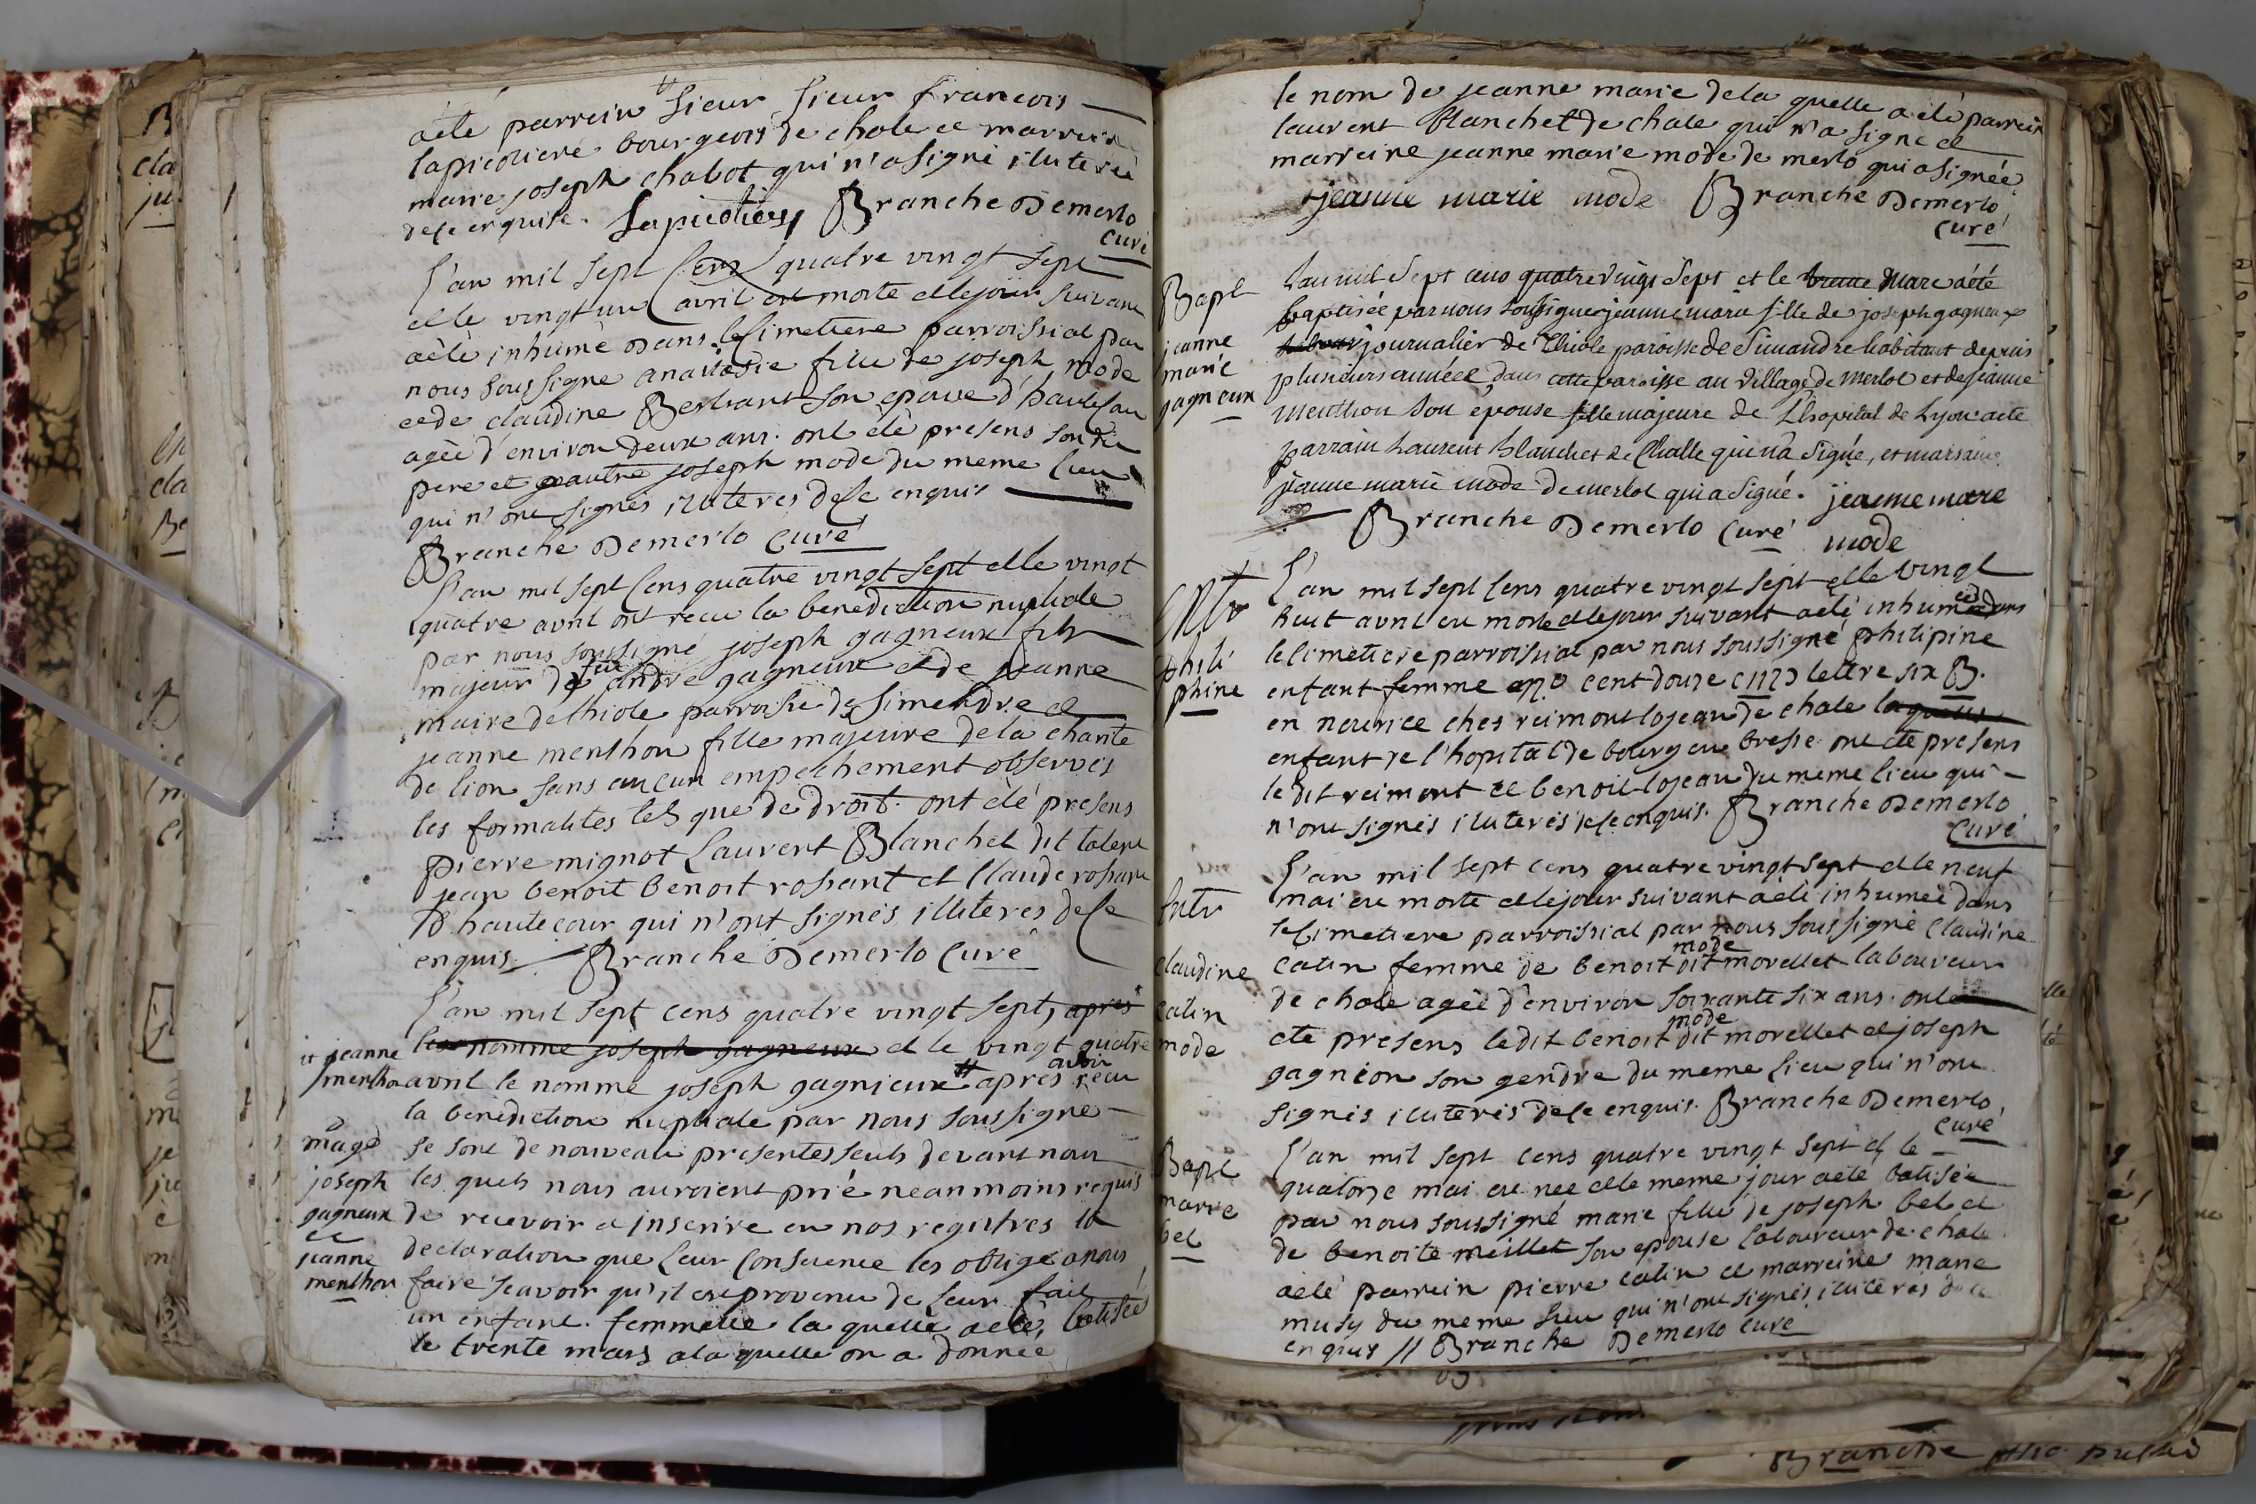 aété parrein sieur sieur francois
lapicotiere bourgeois de chale et marreine
marie joseph chabot qui n'a signé iluteréé
dece enquise. Lapicotiery Branche Demerlo
curé
L'an mil sept cens quatre vingt sept
et le vingt un avril est morte et le jour suivant
aété inhumé dans le simetiere parroissial par
nous soussigné anaitasie fille de joseph mode
et de claudine Berliant son epouse d'hautecour
agée d'environ deux ans. ont été presens son dit
pere et joseph mode du meme lieu
qui n'ont signés iluterés dece enquis
Branche Demerlo Curé
L'an mil sept cens quatre vingt sept et le vingt
quatre avril ont recu la benediction nuptiale
par nous soussigné joseph gagneux fils
majeur de feu andré gagneux et de jeanne
maire de thiole parroisse de simendre et
jeanne menthon fille majeure de la charité
de lion sans aucun empechement observés
les formalites tels que de droit. ont été presens
pierre mignot Laurent Blanchet dit talent
jean benoit benoit rosiant et Claude rosiant
d hautecour qui n'ont signés illiterés dece
enquis. Branche Demerlo Curé
L'an mil sept cens quatre vingt sept, apres
les nomme joseph gagneux et le vingt quatre
avril le nommé joseph gagnieux apres avoir recu
la benediction nuptiale par nous soussigné
se sont de nouveau presentes seuls devant nous
les quels nous auroient prié neanmoins requis
de recevoir a inscrire en nos registres la
declaration que leur consience les oblige anous
faire scavoir qu'il est provenu de leur fait
un enfant. femmelle la quelle aeté batisée
le trente mars ala quelle on a donnée
et jeanne
menthon
mage
joseph
gagneux
et
jeanne
menthon
le nom de jeanne marie dela quelle a été parrein
laurent Blanchet de chale qui n'a signé et
marreine jeanne marie mode de merlo qui a signéé
jeanne marie mode Branche Demerlo
Curé
Bapt
jeanne
marie
gagneux
Lan mil Sept cens quatre vingt Sept et le trente Mars aété
baptisée par nous soussigné jeanne marie fille de joseph gagneux
journalier de Thiole paroisse de Simandre habitant depuis
plusieurs année dans cette paroisse au village de Merlot et de jeanne
menthon son epouse fille majeure de Lhopital de Lyon aete
parrain Laurent blanchet de Challe qui na Signé, et marraine
jeanne marie mode de merlot qui a Signé. jeanne marie
Branche Demerlo Curé mode
Entr
phili
phine
L'an mil sept cens quatre vingt sept et le vingt
huit avril est morte et le jour suivant aeté inhumée dans
le simetiere parroissial par nous soussigné philipine
enfant femme no cent douze (112) lettre six B.
en nourice ches reimont lojean de chale laquelle
enfant de l'hopital de bourg en bresse ont été presens
le dit reimont et benoit lojean du meme lieu qui
n'ont signés iluterés dece enquis. Branche Demerlo
Curé
Entr
claudine
catin
mode
L'an mil sept cens quatre vingt sept et le neuf
mai est morte et le jour suivant aété inhumeé dans
le simetiere parroissial par nous soussigné Claudine
catin femme de benoit mode dit morellet laboureur
de chale agée d'environ soixante six ans. ont
eté presens ledit benoit mode dit morellet et joseph
gagnion son gendre du meme lieu qui n'ont
signés iluterés dece enquis. Branche Demerlo
curé
Bapt
marie
bel
L'an mil sept cens quatre vingt sept et le
quatorze mai est née et le meme jour aété batiséé
par nous soussigné marie fille de joseph bel et
de benoite meillet son epouse laboureur de chale
aeté parrein pierre catin et marreine marie
musy du meme lieu qui n'ont signés iluterés dece
enquis // Branche Demerlo curé
Branche